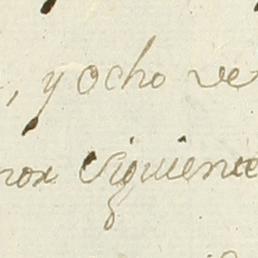 , y ocho ve
nox siguiente